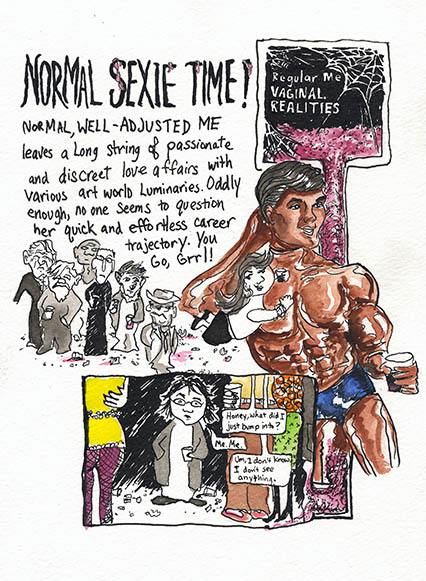 NORMAL SEXIE TIME!
NORMAL, WELL-ADJUSTED ME
leaves a Long string of passionate
and discreet love affairs with
various art world Luminaries. Oddly
enough, no one seems to question
her quick and effortless career
trajectory. You
Go, Grrl!
Regular Me
VAGINAL
REALITIES
Honey, what did I
just bump into?
Me. Me.
Um, I don't know
I don't see
anything.